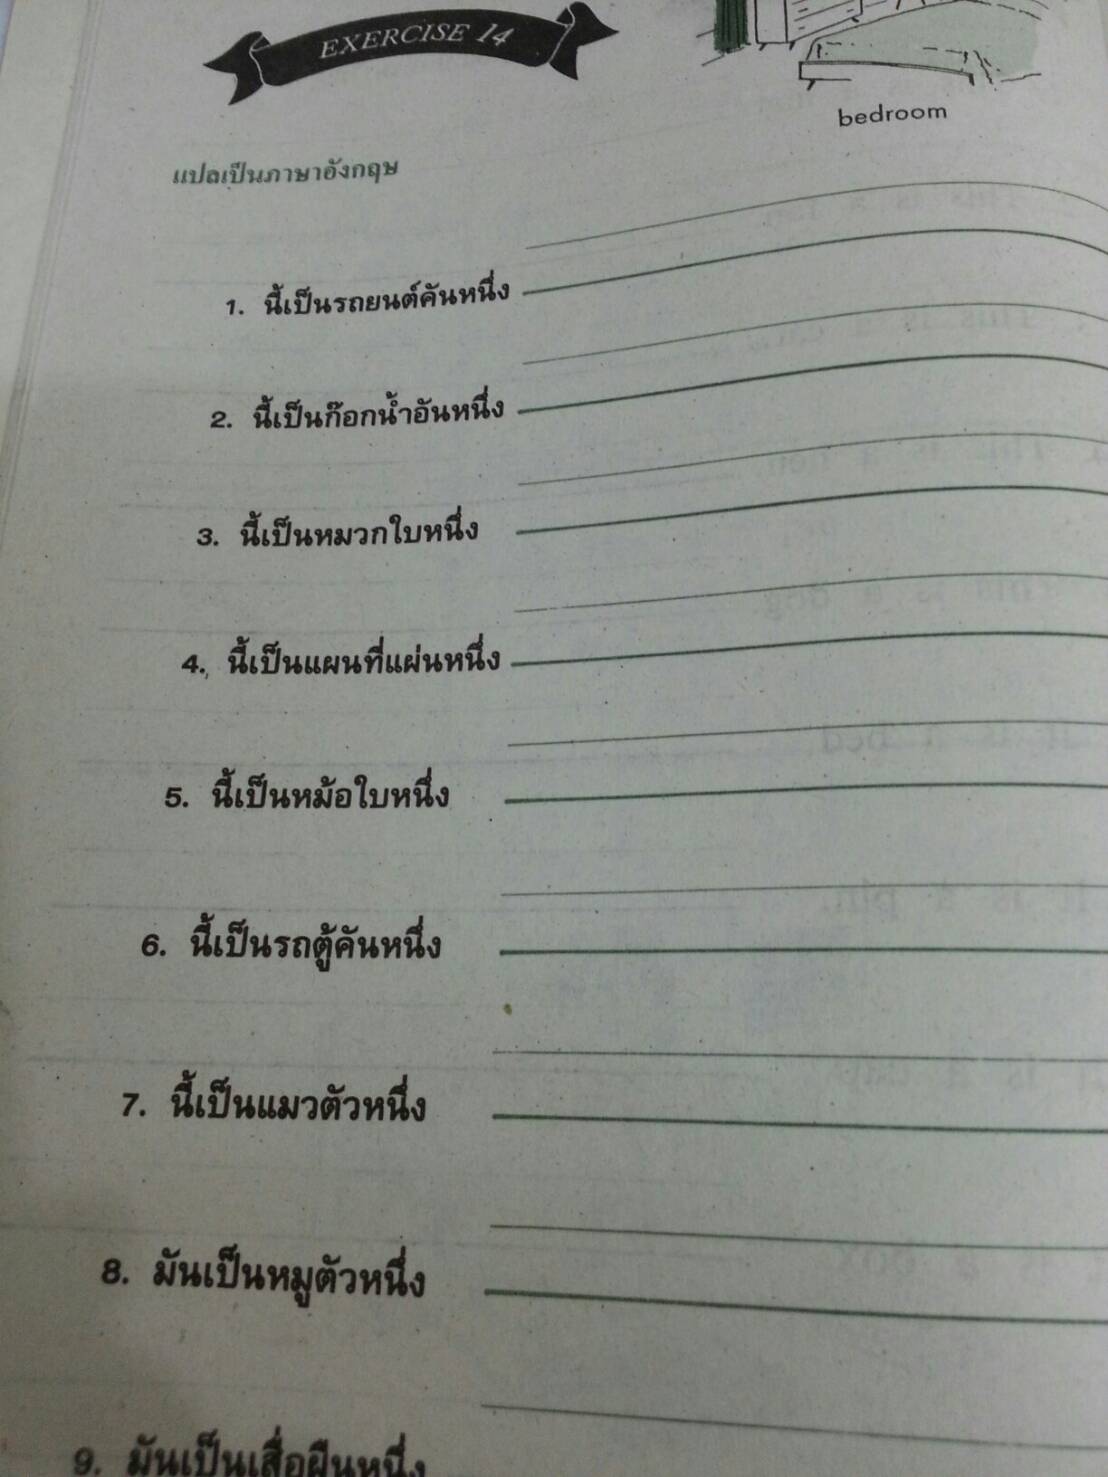 EXERCISE 14
bedroom
แปลเป็นภาษาอังกฤษ
1. นี้เป็นรถยนต์คันหนึ่ง
2. นี้เป็นก๊อกน้ำอันหนึ่ง
3. นี้เป็นหมวกใบหนึ่ง
4. นี้เป็นแผนที่แผ่นหนึ่ง
5. นี้เป็นหม้อใบหนึ่ง
6. นี้เป็นรถตู้คันหนึ่ง
7. นี้เป็นแมวตัวหนึ่ง
8. มันเป็นหมูตัวหนึ่ง
9. มันเป็นเสื่อผืนหนึ่ง